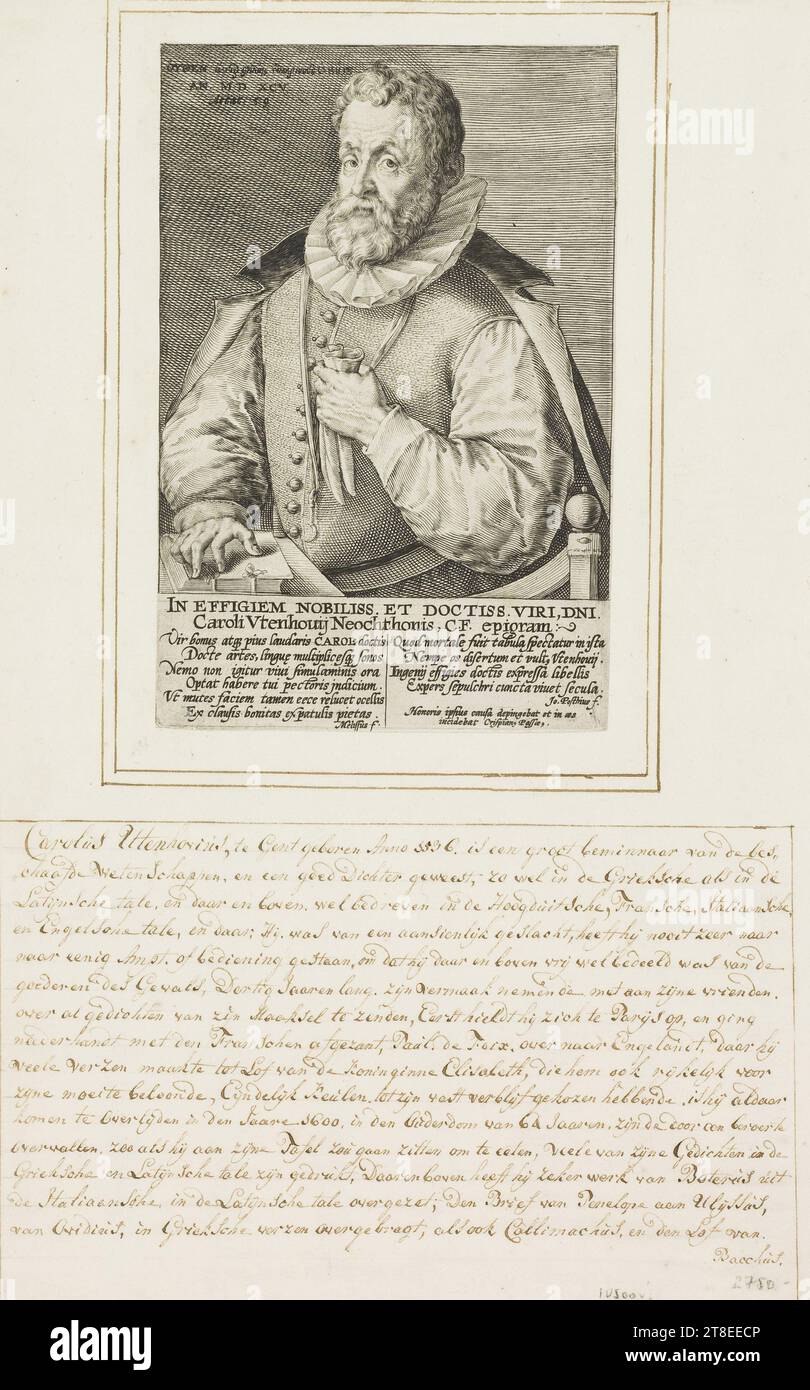 AN. M D XCV.
IN EFFIGIEM NOBILISS. ET DOCTISS. VIRI, DNI.
Caroli Vtenhovij Neochthonis, C.F. epigram:
Vir bonus atq; pius laudaris CAROLe doctis
Docte artes, linguę multiplicesq; sonos
Nemo non igitur vivi simulaminis ora
Optat habere tui pectoris judicium.
Vt muces faciem tamen ecce relucet ocellis
Ex clausis bonitas ex patulis pietas.
Melissus f.
Quod mortale fuit tabula spectatur in ista
Nempe os disertum et vultꝰ Vtenhovij.
Ingenij effigies doctis expressa libellis
Expers sepulchri cuncta vivet secula.
Jo. Posthius f.
Honoris ipsius causa depingebat et in aes
incidebat Crispian, Passæ,.
Carolus Uttenhovius, te Gent geboren Anno 1536. is een groot beminnaar van de bes,
chaafde Wetenschappen, en een goed Dichter geweest, zo wel in de Grieksche als in de
Latynsche tale, en daar en boven, wel bedreven in de Hoogduitsche, Fransche, Italiaansche,
en Engelsche tale, en daar, Hij was van een aansienlijk geslacht, heeft hij nooit zeer naar
naar eenig Ampt, of bediening gestaan, om dat hij daar en boven vrij wel bedeeld was van de
goederen des Gevals, Dertig Jaaren lang, zijn vermaak nemende met aan zijne vrienden,
over al gedichten van zijn Maaksel te zenden, Eerst hieldt hij zich te Parijs op, en ging
naderhandt met den Franschen afgezant, Paul. de Foix, over naar Engelandt, daar hij
veele verzen maakte tot Lof van de Koninginne Elisabeth, die hem ook rijkelijk voor
zyne moeite beloonde, Eyndelijk Keulen, tot zijn vast verblijf gekozen hebbende, is hij aldaar
komen te overlijden in den Jaare 1600, in den Ouderdom van 64 Jaaren, zijnde door een beroerte
overvallen, zoo als hij aan zijne Tafel zou gaan zitten om te eeten, Veele van zijne Gedichten in de
Grieksche en Latynsche tale zijn gedrukt, Daarenboven heeft hij zeker werk van Boterus uit
de Italiaensche, in de Latynsche tale overgezet, Den Brief van Penelope aan Ulyssus,
van Ovidius, in Grieksche verzen overgebragt, als ook Callimachus, en den Lof van
Bacchus.
2750
alamy
Image ID: 2T8EECP
www.alamy.com